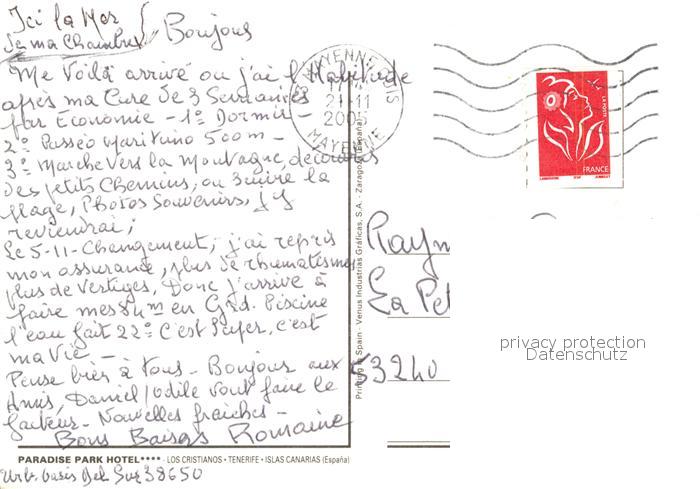 Ici la Mer
de ma Chambre
Bonjour
Me Voilà arrivé ou j'ai l'Habitude
après ma Cure de 3 Semaines
par Economie - 1º Dormir -
2º Passeo Maritimo 500m -
3º Marche Vers la Montagne, découvris
des petits Chemins, ou suivre la
plage, Photos Souvenirs, j'y
reviendrai,
Le 5-11- Changement, j'ai repris
mon assurance, plus de rhumatismes
plus de Vertiges, Donc j'arrive à
faire mes 84m en Grd. Piscine
l'eau fait 22º C'est Super, c'est
ma Vie -
Pense bien à tous - Bonjour aux
Amis, Daniel/Odile vont faire le
facteur - Nouvelles fraiches -
Bons Baisers Romaine
PARADISE PARK HOTEL**** - LOS CRISTIANOS • TENERIFE • ISLAS CANARIAS (España)
Urb. Oasis Del Sur 38650
Printed in Spain - Venus Industrias Gráficas, S.A. - Zaragoza (España)
MAYENNE
21-11
2005
MAYENNE
LA POSTE
FRANCE
Raym
La Pel
53240
privacy protection
Datenschutz